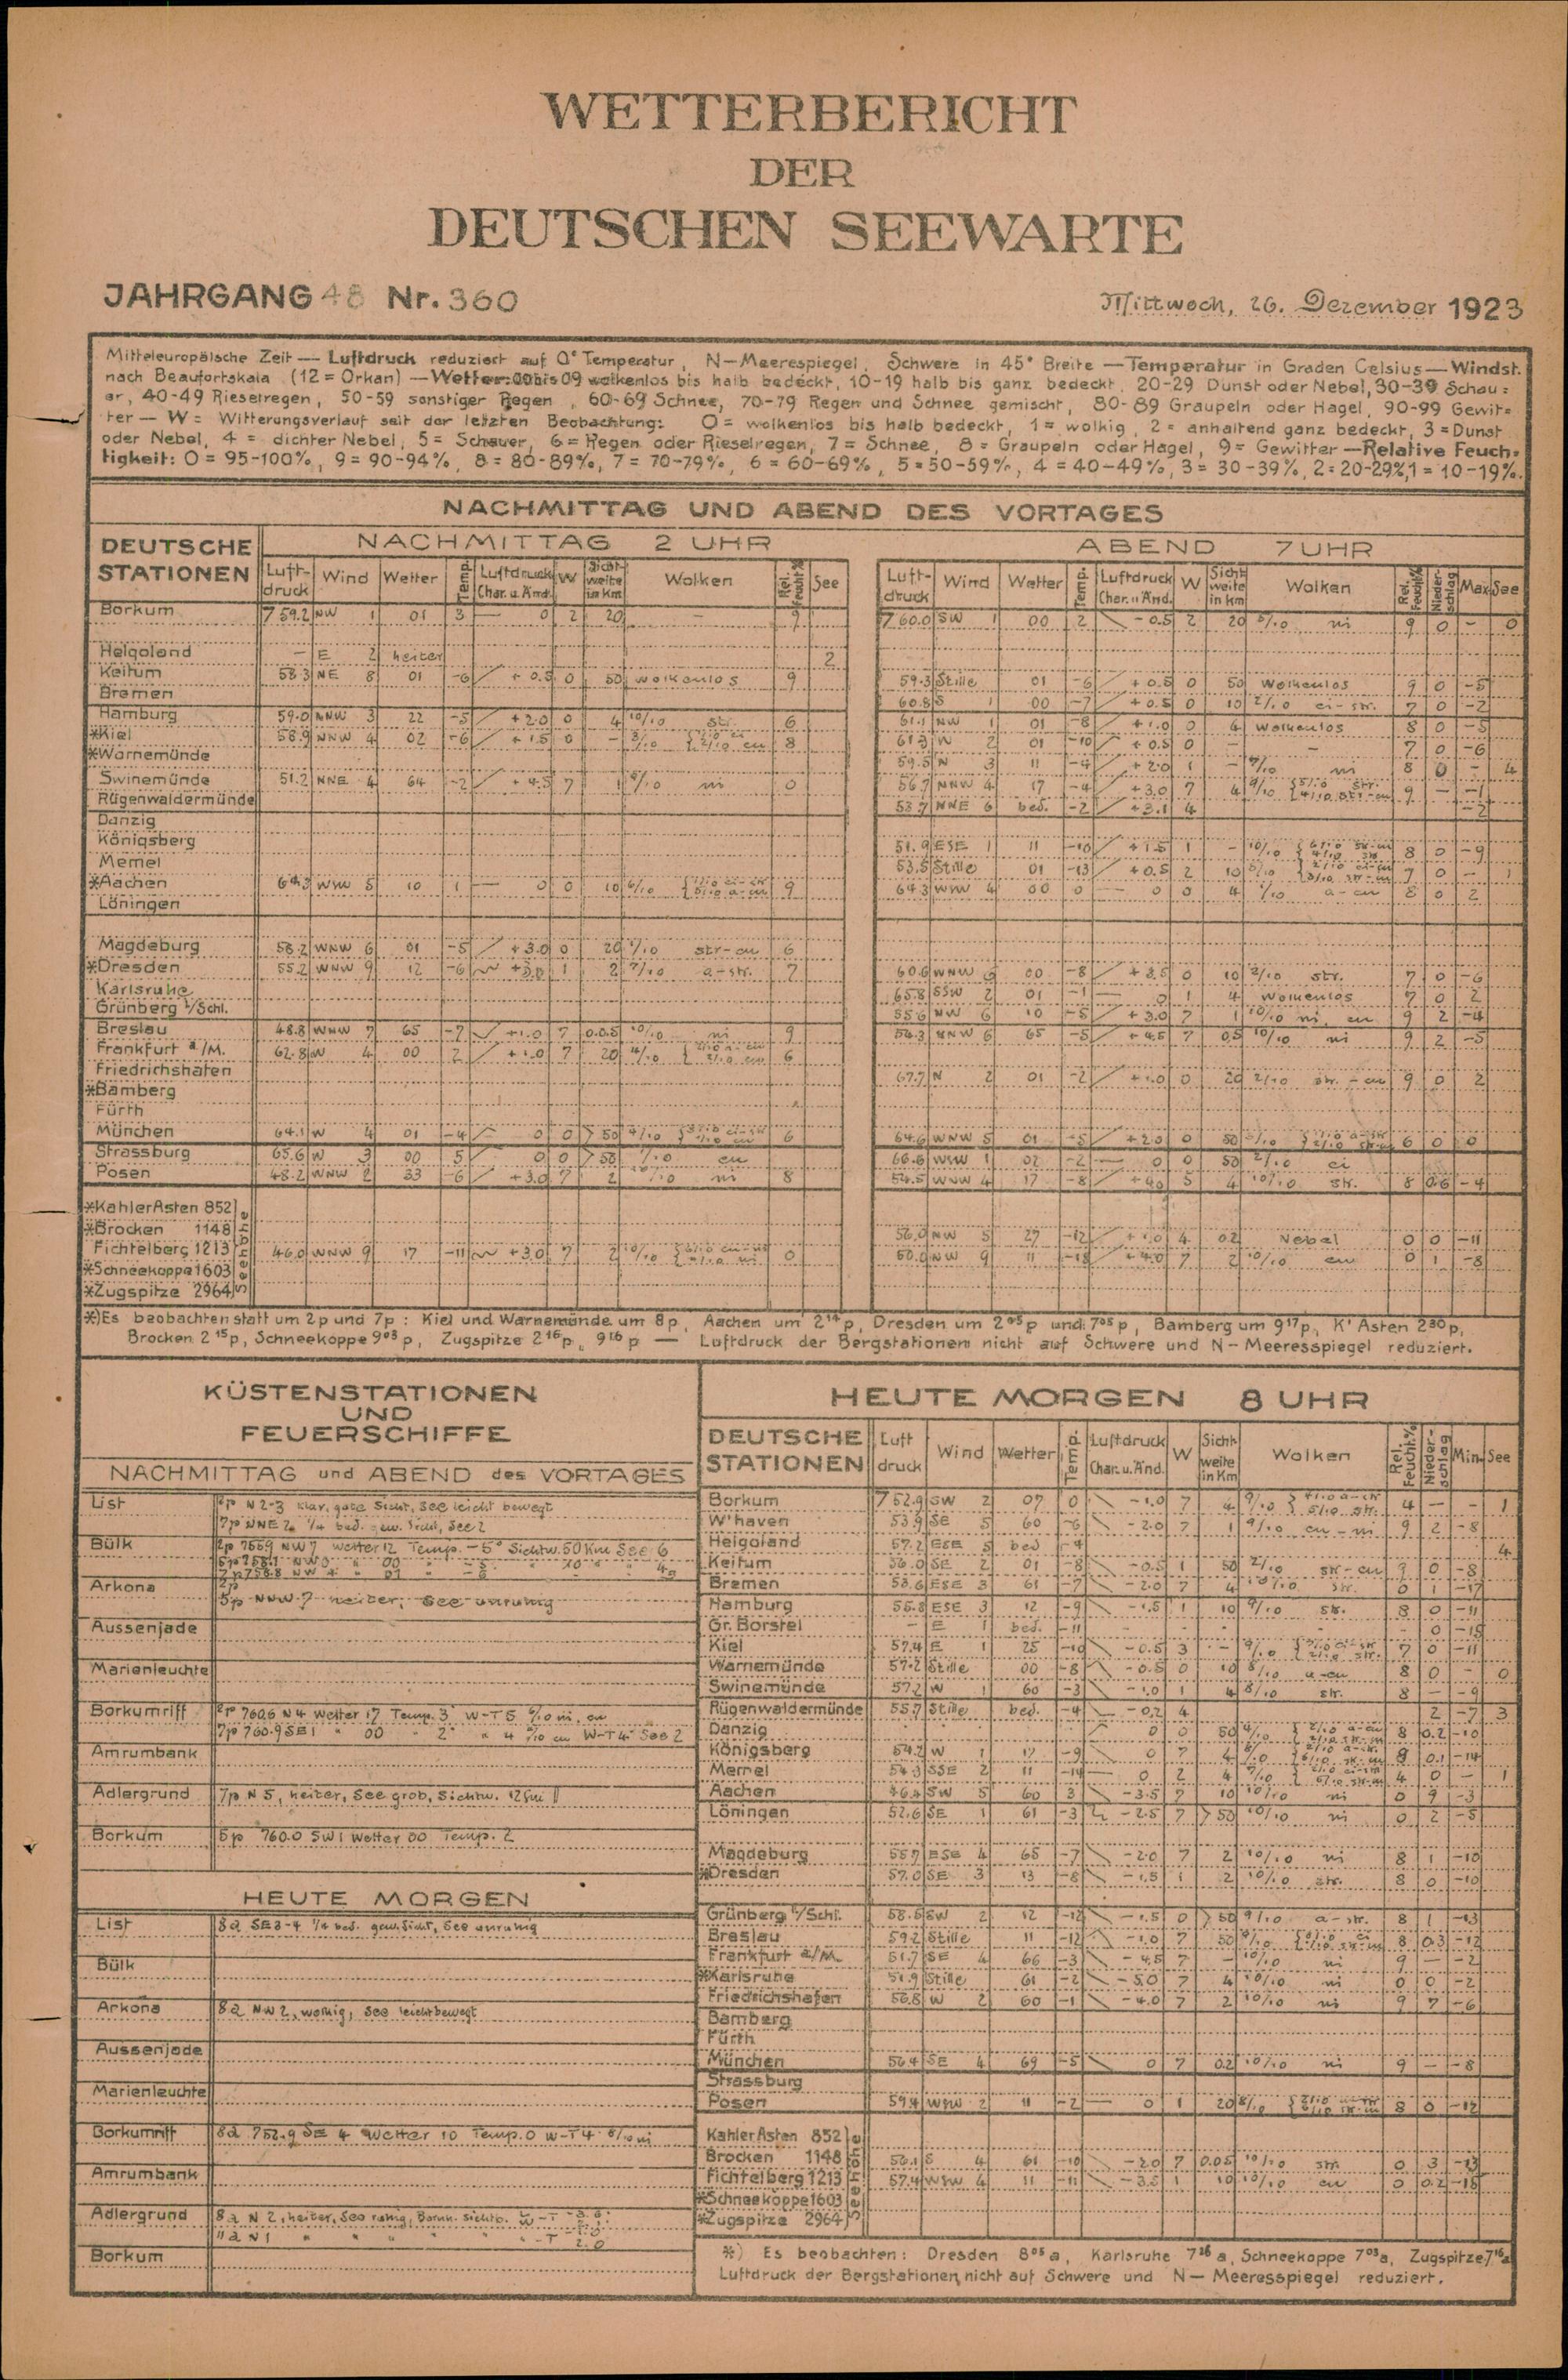 WETTERBERICHT
DER
DEUTSCHEN SEEWARTE
JAHRGANG 48 Nr. 360
Mittwoch, 26. Dezember 1923
Mitteleuropäische Zeit — Luftdruck reduziert auf 0° Temperatur, N—Meerespiegel, Schwere in 45° Breite — Temperatur in Graden Celsius — Windst.
nach Beaufortskala (12 = Orkan) — Wetter: 00 bis 09 wolkenlos bis halb bedeckt, 10-19 halb bis ganz bedeckt, 20-29 Dunst oder Nebel, 30-39 Schau=
er, 40-49 Rieselregen, 50-59 sonstiger Regen, 60-69 Schnee, 70-79 Regen und Schnee gemischt, 80-89 Graupeln oder Hagel, 90-99 Gewit=
ter — W = Witterungsverlauf seit der letzten Beobachtung: 0 = wolkenlos bis halb bedeckt, 1 = wolkig, 2 = anhaltend ganz bedeckt, 3 = Dunst
oder Nebel, 4 = dichter Nebel, 5 = Schauer, 6 = Regen oder Rieselregen, 7 = Schnee, 8 = Graupeln oder Hagel, 9 = Gewitter — Relative Feuch=
tigkeit: 0 = 95-100%, 9 = 90-94%, 8 = 80-89%, 7 = 70-79%, 6 = 60-69%, 5 = 50-59%, 4 = 40-49%, 3 = 30-39%, 2 = 20-29%, 1 = 10-19%.
NACHMITTAG UND ABEND DES VORTAGES
DEUTSCHE STATIONEN
NACHMITTAG 2 UHR
ABEND 7 UHR
Luft-druck Wind Wetter Temp. Luftdruck Char. u. Änd. W Sicht-weite in Km Wolken Rel. Feucht.% See
Luft-druck Wind Wetter Temp. Luftdruck Char. u. Änd. W Sicht-weite in km Wolken Rel. Feucht.% Nieder-schlag Max See
Borkum 759.2 NW 1 01 3 — 0 2 20 — 9 760.0 SW 1 00 2 -0.5 2 20 ni 9 0 - 0
Helgoland — E 2 heiter 2
Keitum 58.3 NE 8 01 -6 +0.5 0 50 wolkenlos 9 59.3 Stille 01 -6 +0.5 0 50 wolkenlos 9 0 -5
Bremen 60.8 S 1 00 -7 +0.5 0 10 2/10 ci-str. 7 0 -2
Hamburg 59.0 NNW 3 22 -5 +2.0 0 4 10/10 str. 6 61.1 NW 1 01 -8 +1.0 0 4 wolkenlos 8 0 -5
*Kiel 58.9 NNW 4 02 -6 +1.5 0 - 8 61.3 W 2 01 -10 +0.5 0 - - 7 0 -6
*Warnemünde 59.5 N 3 11 -4 +2.0 1 - ni 8 0 - 4
Swinemünde 51.2 NNE 4 64 -2 +4.5 7 1 ni 0 56.7 NNW 4 17 -4 +3.0 7 4 9 — -1
Rügenwaldermünde 53.7 NNE 6 bed. -2 +3.1 4 -2
Danzig
Königsberg 51.9 ESE 1 11 -10 +1.5 1 - 8 0 -9
Memel 53.5 Stille 01 -13 +0.5 2 10 7 0 - 1
*Aachen 64.3 WNW 5 10 1 — 0 0 10 9 64.3 WNW 4 00 0 — 0 0 4 a-cu 8 0 2
Löningen
Magdeburg 58.2 WNW 6 01 -5 +3.0 0 20 str-cu 6
*Dresden 55.2 WNW 9 12 -6 1 2 7/10 a-str. 7 60.6 WNW 6 00 -8 +3.5 0 10 2/10 str. 7 0 -6
Karlsruhe 65.8 SSW 2 01 -1 — 0 1 4 wolkenlos 7 0 2
Grünberg i/Schl. 55.6 NW 6 10 -5 +3.0 7 1 10/10 ni, cu 9 2 -4
Breslau 48.8 WNW 7 65 -7 +1.0 7 10/10 ni 9 54.3 6 65 -5 +4.5 7 0.5 10/10 ni 9 2 -5
Frankfurt a/M. 62.8 W 4 00 2 +1.0 7 20 6
Friedrichshafen 67.7 N 2 01 -2 +1.0 0 20 2/10 str.-cu 9 0 2
*Bamberg
Fürth
München 64.1 W 4 01 -4 0 0 >50 6 64.6 WNW 5 01 -5 +2.0 0 50 6 0 0
Strassburg 65.6 W 3 00 5 0 0 >50 cu 66.6 1 02 -2 — 0 0 50 2/10 ci
Posen 48.2 WNW 2 33 -6 +3.0 7 2 ni 8 54.5 WNW 4 17 -8 5 4 10/10 str. 8 0.6 -4
*Kahler Asten 852
*Brocken 1148 56.0 NW 5 27 -12 4 0.2 Nebel 0 0 -11
Fichtelberg 1213 46.0 WNW 9 17 -11 +3.0 7 2 0 50.0 NW 9 11 +4.0 7 2 10/10 cu 0 1 -8
*Schneekoppe 1603
*Zugspitze 2964
Seehöhe
*) Es beobachten statt um 2p und 7p: Kiel und Warnemünde um 8p, Aachen um 2¹⁴p, Dresden um 2⁰⁵p und 7⁰⁵p, Bamberg um 9¹⁷p, K'Asten 2³⁰p,
Brocken 2¹⁵p, Schneekoppe 9⁰³p, Zugspitze 2¹⁶p, 9¹⁶p — Luftdruck der Bergstationen nicht auf Schwere und N-Meeresspiegel reduziert.
KÜSTENSTATIONEN
UND
FEUERSCHIFFE
NACHMITTAG und ABEND des VORTAGES
List 2p N 2-3 klar, gute Sicht, See leicht bewegt
7p NNE 2, 1/4 bed. gew. Sicht, See 2
Bülk 2p 755.9 NW 7 Wetter 12 Temp. -5° Sichtw. 50 Km See 6
Arkona 2p
5p NNW 7 heiter, See unruhig
Aussenjade
Marienleuchte
Borkumriff 2p 760.6 N 4 Wetter 17 Temp. 3° W-T 5 ni, cu
7p 760.9 SE 1 " 00 " 2° " 4 cu W-T 4 See 2
Amrumbank
Adlergrund 7p N 5, heiter, See grob, Sichtw. 12 Sm
Borkum 5p 760.0 SW 1 Wetter 00 Temp. 2
HEUTE MORGEN
List 8a SE 3-4 1/4 bed. gew. Sicht, See unruhig
Bülk
Arkona 8a NW 2, wolkig, See leicht bewegt
Aussenjade
Marienleuchte
Borkumriff 8a 752.9 SE 4 Wetter 10 Temp. 0 W-T 4 8/10 ni
Amrumbank
Adlergrund 8a N 2, heiter, See ruhig,
11a N 1
Borkum
HEUTE MORGEN 8 UHR
DEUTSCHE STATIONEN Luft druck Wind Wetter Temp. Luftdruck Char. u. Änd. W Sicht-weite in Km Wolken Rel. Feucht.% Nieder-schlag Min. See
Borkum 752.9 SW 2 07 0 -1.0 7 4 4 — - 1
W'haven 53.9 SE 5 60 -6 -2.0 7 1 9/10 cu-ni 9 2 -8
Helgoland 57.2 ESE 5 bed -4 4
Keitum 56.0 SE 2 01 -8 -0.5 1 50 2/10 str-cu 9 0 -8
Bremen 53.6 ESE 3 61 -7 -2.0 7 4 10/10 str. 0 1 -17
Hamburg 55.8 ESE 3 12 -9 -1.5 1 10 9/10 str. 8 0 -11
Gr. Borstel — E 1 bed. -11 - - - - 0 -15
Kiel 57.4 E 1 25 -10 -0.5 3 - 7 0 -11
Warnemünde 57.2 Stille 00 -8 -0.5 0 10 a-cu 8 0 - 0
Swinemünde 57.2 W 1 60 -3 -1.0 1 4 8/10 str. 8 — -9
Rügenwaldermünde 55.7 Stille bed. -4 -0.2 4 2 -7 3
Danzig 0 0 50 8 0.2 -10
Königsberg 54.2 W 1 17 -9 0 7 4 8 0.1 -14
Memel 54.3 SSE 2 11 -14 — 0 2 4 4 0 - 1
Aachen 46.4 SW 5 60 3 -3.5 7 10 10/10 ni 0 9 -3
Löningen 52.6 SE 1 61 -3 -2.5 7 >50 10/10 ni 0 2 -5
Magdeburg 55.7 ESE 4 65 -7 -2.0 7 2 10/10 ni 8 1 -10
*Dresden 57.0 SE 3 13 -8 -1.5 1 2 10/10 str. 8 0 -10
Grünberg i/Schl. 58.5 SW 2 12 -12 -1.5 0 >50 9/10 a-str. 8 1 -13
Breslau 59.2 Stille 11 -12 -1.0 7 50 8 0.3 -12
Frankfurt a/M. 51.7 SE 4 66 -3 -4.5 7 - 10/10 ni 9 — -2
*Karlsruhe 51.9 Stille 61 -2 -5.0 7 4 10/10 ni 0 0 -2
Friedrichshafen 56.8 W 2 60 -1 -4.0 7 2 10/10 ni 9 7 -6
Bamberg
Fürth
München 56.4 SE 4 69 -5 0 7 0.2 10/10 ni 9 — -8
Strassburg
Posen 59.4 WSW 2 11 -2 — 0 1 20 8/10 8 0 -12
Kahler Asten 852
Brocken 1148 56.1 S 4 61 -10 -2.0 7 0.05 10/10 str. 0 3 -13
Fichtelberg 1213 57.4 WSW 4 11 -11 -3.5 1 10 10/10 cu 0 0.2 -18
*Schneekoppe 1603
*Zugspitze 2964
Seehöhe
*) Es beobachten: Dresden 8⁰⁵a, Karlsruhe 7²⁶a, Schneekoppe 7⁰³a, Zugspitze 7¹⁶a
Luftdruck der Bergstationen nicht auf Schwere und N—Meeresspiegel reduziert.